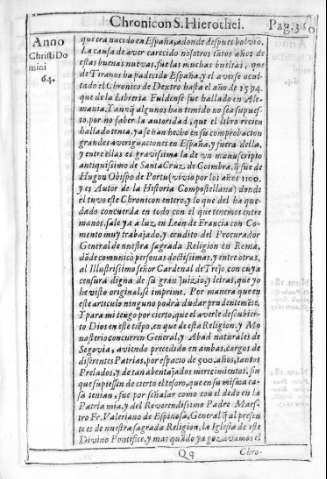 Chronicon S. Hierothei. Pag. 3
Anno
Christi Do
mini
64.
que era nacido en España, adonde despues bolvio.
La causa de aver carecido nosotros tātos años de
estas buenas nuevas, fue las muchas que
de Tiranos ha padecido España, y el averse ocul
tado el Chronico de Dextro hasta el año de 1594.
que de la Libreria Fuldense fue hallado en Ale
mania, Y aunq̄ algunos han temido no sea supues
to, por no saber la autoridad, que el libro recien
hallado tenia, ya se han hecho en su comprobacion
grandes averiguaciones en España, y fuera della,
y entre ellas es gravissima la de un manuscripto
antiquissimo de Santa Cruz, de Coimbra, q̄ fue de
Hugon Obispo de Portu (vivio por los años 1100.
y es Autor de la Historia Compostellana) donde
el tuvo este Chronicon entero, y lo que del ha que-
dado concuerda en todo con el que tenemos entre
manos, sale ya a luz, en Leon de Francia con Co-
mento muy trabajado, y erudito del Procurador
General de nuestra sagrada Religion en Roma,
dōde comunicò personas doctissimas, y entre otras,
al Illustrissimo señor Cardenal de Trejo, con cuya
censura digna de su gran juizio, y letras, que yo
he visto original, se imprime. Por manera que en
este articulo ninguno podrà dudar prudentemēte.
Y para mi tengo por cierto, que el averle descubier
to Dios en este tiēpo, en que de esta Religion, y Mo
nasterio concurren General, y Abad naturales de
Segovia, aviendo precedido en ambas, cargos de
diferentes Patrias, por espacio de 500. años, tantos
Prelados, y de tan aventajados merecimientos, sin
que supiessen de cierto el tesoro, que en su misma ca-
sa tenian, fue por señalar como con el dedo en la
Patria mia, y del Reverendissimo Padre Maes-
tro Fr. Valeriano de Espinosa, General q̄ al presen
te es de nuestra sagrada Religion, la Iglesia de este
Divino Pontifice, y mas quādo ya gozavamos el
Qq Chro-